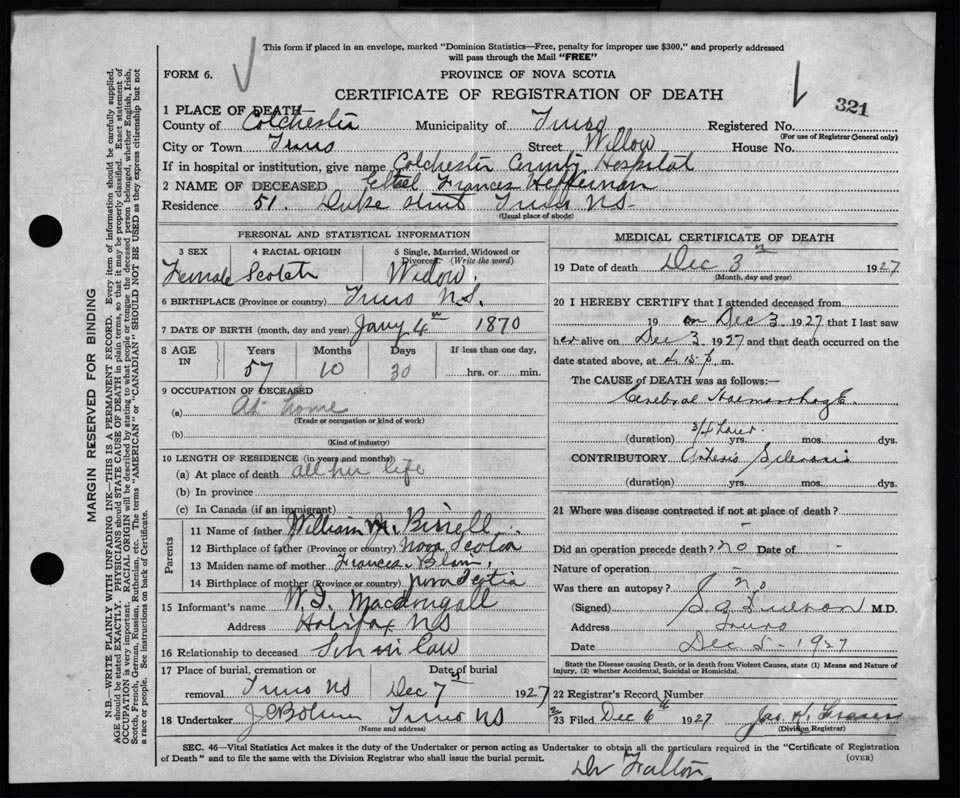 This form if placed in an envelope, marked "Dominion Statistics—Free, penalty for improper use $300," and properly addressed
will pass through the Mail "FREE"
FORM 6.
PROVINCE OF NOVA SCOTIA
CERTIFICATE OF REGISTRATION OF DEATH
321
1 PLACE OF DEATH
County of Colchester Municipality of Truro Registered No.
(For use of Registrar General only)
City or Town Truro Street Willow House No.
If in hospital or institution, give name Colchester County Hospital
2 NAME OF DECEASED Ethel Frances Heffernan
Residence 51. Duke Street Truro NS
(Usual place of abode)
PERSONAL AND STATISTICAL INFORMATION
3 SEX 4 RACIAL ORIGIN 5 Single, Married, Widowed or Divorced (Write the word)
Female Scotch Widow.
6 BIRTHPLACE (Province or country) Truro N.S.
7 DATE OF BIRTH (month, day and year) Jany 4th 1870
8 AGE IN Years Months Days If less than one day,
57 10 30 hrs. or min.
9 OCCUPATION OF DECEASED
(a) At home
(Trade or occupation or kind of work)
(b)
(Kind of industry)
10 LENGTH OF RESIDENCE (in years and months)
(a) At place of death all her life
(b) In province
(c) In Canada (if an immigrant)
Parents
11 Name of father William Birrell
12 Birthplace of father (Province or country) Nova Scotia
13 Maiden name of mother Frances
14 Birthplace of mother (Province or country) Nova Scotia
15 Informant's name Macdougall
Address Halifax NS
16 Relationship to deceased Son in law
17 Place of burial, cremation or Date of burial
removal Truro NS Dec 7th 1927
18 Undertaker Truro NS
(Name and address)
MEDICAL CERTIFICATE OF DEATH
19 Date of death Dec 3 1927
(Month, day and year)
20 I HEREBY CERTIFY that I attended deceased from
19 on Dec 3 1927 that I last saw
her alive on Dec 3 1927 and that death occurred on the
date stated above, at 4.15 p. m.
The CAUSE of DEATH was as follows:—
Cerebral Haemorrhage
3/4 hour.
(duration) yrs. mos. dys.
CONTRIBUTORY Arterio Sclerosis
(duration) yrs. mos. dys.
21 Where was disease contracted if not at place of death?
-
Did an operation precede death? no Date of -
Nature of operation
Was there an autopsy? no
(Signed) M.D.
Address Truro
Date Dec 5- 1927
State the Disease causing Death, or in death from Violent Causes, state (1) Means and Nature of
Injury, (2) whether Accidental, Suicidal or Homicidal.
22 Registrar's Record Number
23 Filed Dec 6th 1927 Jas. H.
(Division Registrar)
SEC. 46—Vital Statistics Act makes it the duty of the Undertaker or person acting as Undertaker to obtain all the particulars required in the "Certificate of Registration
of Death" and to file the same with the Division Registrar who shall issue the burial permit.
(OVER)
Dr
MARGIN RESERVED FOR BINDING
N.B.—WRITE PLAINLY WITH UNFADING INK—THIS IS A PERMANENT RECORD. Every item of information should be carefully supplied.
AGE should be stated EXACTLY. PHYSICIANS should STATE CAUSE OF DEATH in plain terms, so that it may be properly classified. Exact statement of
OCCUPATION is very important. RACIAL ORIGIN will be described by stating to what people or tongue the deceased person belonged, whether English, Irish,
Scotch, French, German, Russian, Ruthenian, etc. The terms "AMERICAN" or "CANADIAN" SHOULD NOT BE USED as they express citizenship but not
a race or people. See instructions on back of Certificate.